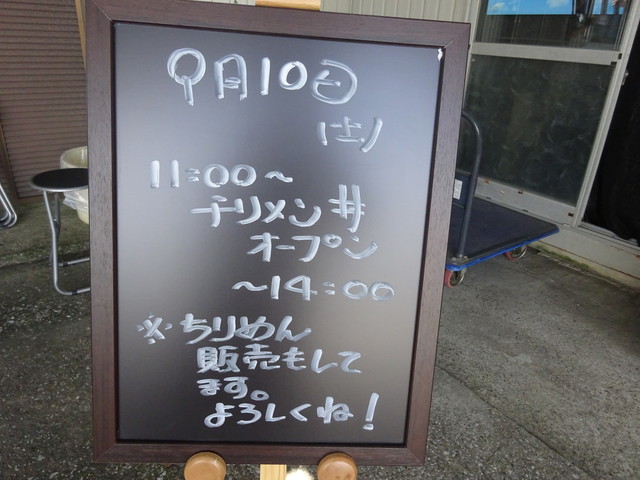 9月10日
(土)
11:00～
チリメン丼
オープン
～14:00
※ちりめん
販売もして
ます。
よろしくね!